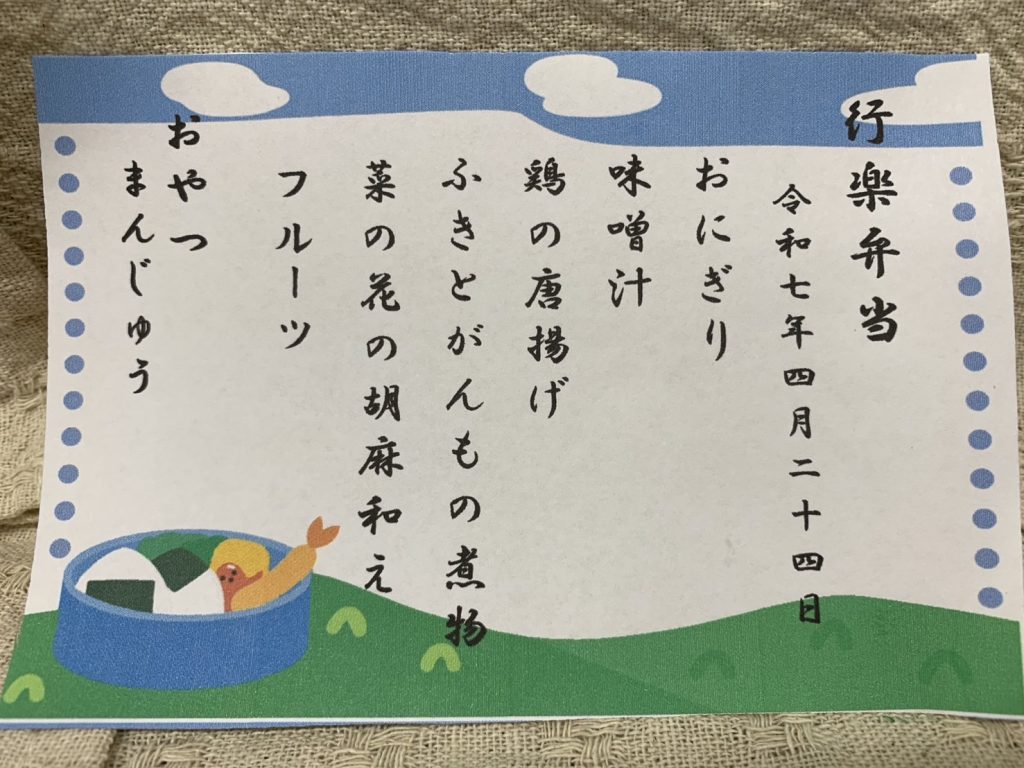 行楽弁当
令和七年四月二十四日
おにぎり
味噌汁
鶏の唐揚げ
ふきとがんもの煮物
菜の花の胡麻和え
フルーツ
おやつ
まんじゅう